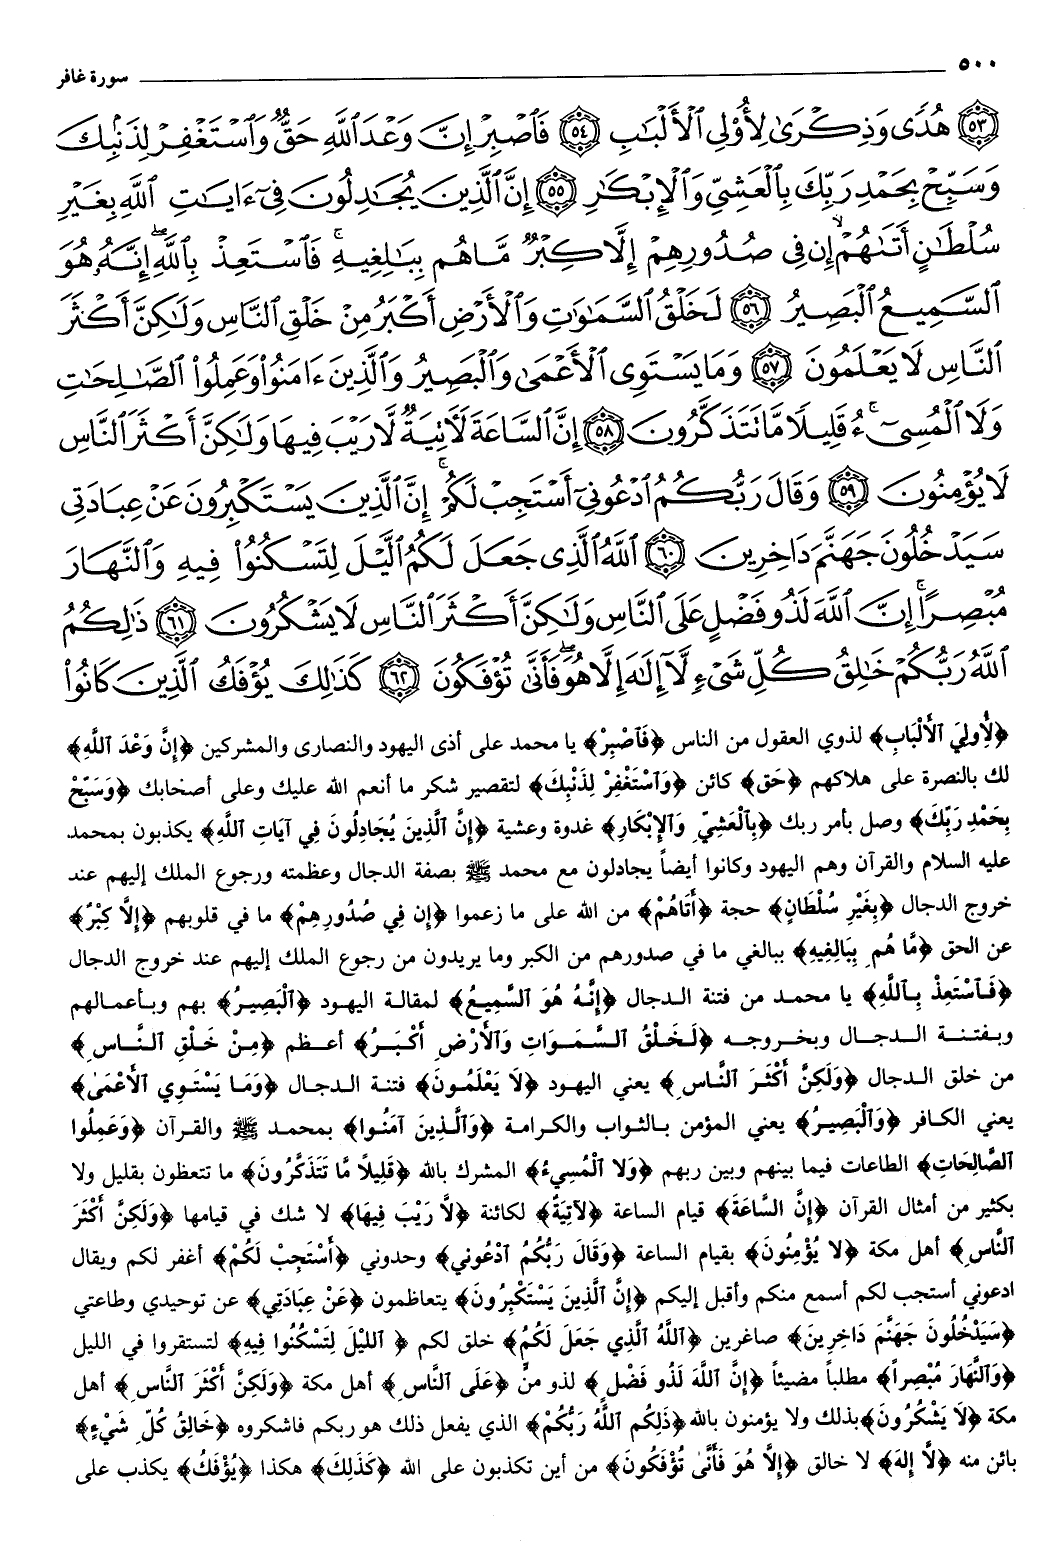 ٥٠٠ سورة غافر
﴿٥٣﴾ هُدًى وَذِكْرَىٰ لِأُوْلِي ٱلْأَلْبَٰبِ ﴿٥٤﴾ فَٱصْبِرْ إِنَّ وَعْدَ ٱللَّهِ حَقٌّ وَٱسْتَغْفِرْ لِذَنۢبِكَ
وَسَبِّحْ بِحَمْدِ رَبِّكَ بِٱلْعَشِيِّ وَٱلْإِبْكَٰرِ ﴿٥٥﴾ إِنَّ ٱلَّذِينَ يُجَٰدِلُونَ فِيٓ ءَايَٰتِ ٱللَّهِ بِغَيْرِ
سُلْطَٰنٍ أَتَىٰهُمْ ۙ إِن فِي صُدُورِهِمْ إِلَّا كِبْرٌ مَّا هُم بِبَٰلِغِيهِ ۚ فَٱسْتَعِذْ بِٱللَّهِ ۖ إِنَّهُۥ هُوَ
ٱلسَّمِيعُ ٱلْبَصِيرُ ﴿٥٦﴾ لَخَلْقُ ٱلسَّمَٰوَٰتِ وَٱلْأَرْضِ أَكْبَرُ مِنْ خَلْقِ ٱلنَّاسِ وَلَٰكِنَّ أَكْثَرَ
ٱلنَّاسِ لَا يَعْلَمُونَ ﴿٥٧﴾ وَمَا يَسْتَوِي ٱلْأَعْمَىٰ وَٱلْبَصِيرُ وَٱلَّذِينَ ءَامَنُوا۟ وَعَمِلُوا۟ ٱلصَّٰلِحَٰتِ
وَلَا ٱلْمُسِيٓءُ ۚ قَلِيلًا مَّا تَتَذَكَّرُونَ ﴿٥٨﴾ إِنَّ ٱلسَّاعَةَ لَءَاتِيَةٌ لَّا رَيْبَ فِيهَا وَلَٰكِنَّ أَكْثَرَ ٱلنَّاسِ
لَا يُؤْمِنُونَ ﴿٥٩﴾ وَقَالَ رَبُّكُمُ ٱدْعُونِيٓ أَسْتَجِبْ لَكُمْ ۚ إِنَّ ٱلَّذِينَ يَسْتَكْبِرُونَ عَنْ عِبَادَتِي
سَيَدْخُلُونَ جَهَنَّمَ دَاخِرِينَ ﴿٦٠﴾ ٱللَّهُ ٱلَّذِي جَعَلَ لَكُمُ ٱلَّيْلَ لِتَسْكُنُوا۟ فِيهِ وَٱلنَّهَارَ
مُبْصِرًا ۚ إِنَّ ٱللَّهَ لَذُو فَضْلٍ عَلَى ٱلنَّاسِ وَلَٰكِنَّ أَكْثَرَ ٱلنَّاسِ لَا يَشْكُرُونَ ﴿٦١﴾ ذَٰلِكُمُ
ٱللَّهُ رَبُّكُمْ خَٰلِقُ كُلِّ شَيْءٍ لَّآ إِلَٰهَ إِلَّا هُوَ ۖ فَأَنَّىٰ تُؤْفَكُونَ ﴿٦٢﴾ كَذَٰلِكَ يُؤْفَكُ ٱلَّذِينَ كَانُوا۟
﴿لِأُولِيَ ٱلْأَلْبَابِ﴾ لذوي العقول من الناس ﴿فَٱصْبِرْ﴾ يا محمد على أذى اليهود والنصارى والمشركين ﴿إِنَّ وَعْدَ ٱللَّهِ﴾
لك بالنصرة على هلاكهم ﴿حَق﴾ كائن ﴿وَٱسْتَغْفِرْ لِذَنْبِكَ﴾ لتقصير شكر ما أنعم الله عليك وعلى أصحابك ﴿وَسَبِّحْ
بِحَمْدِ رَبِّكَ﴾ وصل بأمر ربك ﴿بِٱلْعَشِيِّ وَٱلإِبْكَارِ﴾ غدوة وعشية ﴿إِنَّ ٱلَّذِينَ يُجَادِلُونَ فِي آيَاتِ ٱللَّهِ﴾ يكذبون بمحمد
عليه السلام والقرآن وهم اليهود وكانوا أيضاً يجادلون مع محمد ﷺ بصفة الدجال وعظمته ورجوع الملك إليهم عند
خروج الدجال ﴿بِغَيْرِ سُلْطَانٍ﴾ حجة ﴿أَتَاهُمْ﴾ من الله على ما زعموا ﴿إِن فِي صُدُورِهِمْ﴾ ما في قلوبهم ﴿إِلَّا كِبْرٌ﴾
عن الحق ﴿مَّا هُم بِبَالِغِيهِ﴾ ببالغي ما في صدورهم من الكبر وما يريدون من رجوع الملك إليهم عند خروج الدجال
﴿فَٱسْتَعِذْ بِٱللَّهِ﴾ يا محمد من فتنة الدجال ﴿إِنَّهُ هُوَ ٱلسَّمِيعُ﴾ لمقالة اليهود ﴿ٱلْبَصِيرُ﴾ بهم وبأعمالهم
وبفتنة الدجال وبخروجه ﴿لَخَلْقُ ٱلسَّمَوَاتِ وَٱلأَرْضِ أَكْبَرُ﴾ أعظم ﴿مِنْ خَلْقِ ٱلنَّاسِ﴾
من خلق الدجال ﴿وَلَكِنَّ أَكْثَرَ ٱلنَّاسِ﴾ يعني اليهود ﴿لَا يَعْلَمُونَ﴾ فتنة الدجال ﴿وَمَا يَسْتَوِي ٱلأَعْمَىٰ﴾
يعني الكافر ﴿وَٱلْبَصِيرُ﴾ يعني المؤمن بالثواب والكرامة ﴿وَٱلَّذِينَ آمَنُوا﴾ بمحمد ﷺ والقرآن ﴿وَعَمِلُوا
ٱلصَّالِحَاتِ﴾ الطاعات فيما بينهم وبين ربهم ﴿وَلا ٱلْمُسِيءُ﴾ المشرك بالله ﴿قَلِيلاً مَّا تَتَذَكَّرُونَ﴾ ما تتعظون بقليل ولا
بكثير من أمثال القرآن ﴿إِنَّ ٱلسَّاعَةَ﴾ قيام الساعة ﴿لآتِيَةٌ﴾ لكائنة ﴿لاَّ رَيْبَ فِيهَا﴾ لا شك في قيامها ﴿وَلَكِنَّ أَكْثَرَ
ٱلنَّاسِ﴾ أهل مكة ﴿لا يُؤْمِنُونَ﴾ بقيام الساعة ﴿وَقَالَ رَبُّكُمُ ٱدْعُونِي﴾ وحدوني ﴿أَسْتَجِبْ لَكُمْ﴾ أغفر لكم ويقال
ادعوني أستجب لكم أسمع منكم وأقبل إليكم ﴿إِنَّ ٱلَّذِينَ يَسْتَكْبِرُونَ﴾ يتعاظمون ﴿عَنْ عِبَادَتِي﴾ عن توحيدي وطاعتي
﴿سَيَدْخُلُونَ جَهَنَّمَ دَاخِرِينَ﴾ صاغرين ﴿ٱللَّهُ ٱلَّذِي جَعَلَ لَكُمُ﴾ خلق لكم ﴿ ٱلليْلَ لِتَسْكُنُوا فِيهِ﴾ لتستقروا في الليل
﴿وَٱلنَّهَارَ مُبْصِراً﴾ مطلباً مضيئاً ﴿إِنَّ ٱللَّهَ لَذُو فَضْلٍ﴾ لذو منٍّ ﴿عَلَى ٱلنَّاسِ﴾ أهل مكة ﴿وَلَكِنَّ أَكْثَرَ ٱلنَّاسِ﴾ أهل
مكة ﴿لَا يَشْكُرُونَ﴾ بذلك ولا يؤمنون بالله ﴿ذَلِكُم ٱللَّهُ رَبُّكُمْ﴾ الذي يفعل ذلك هو ربكم فاشكروه ﴿خَالِقُ كُلِّ شَيْءٍ﴾
بائن منه ﴿لَا إِلهَ﴾ لا خالق ﴿إِلَّا هُوَ فَأَنَّىٰ تُؤْفَكُونَ﴾ من أين تكذبون على الله ﴿كَذَلِكَ﴾ هكذا ﴿يُؤْفَكُ﴾ يكذب على